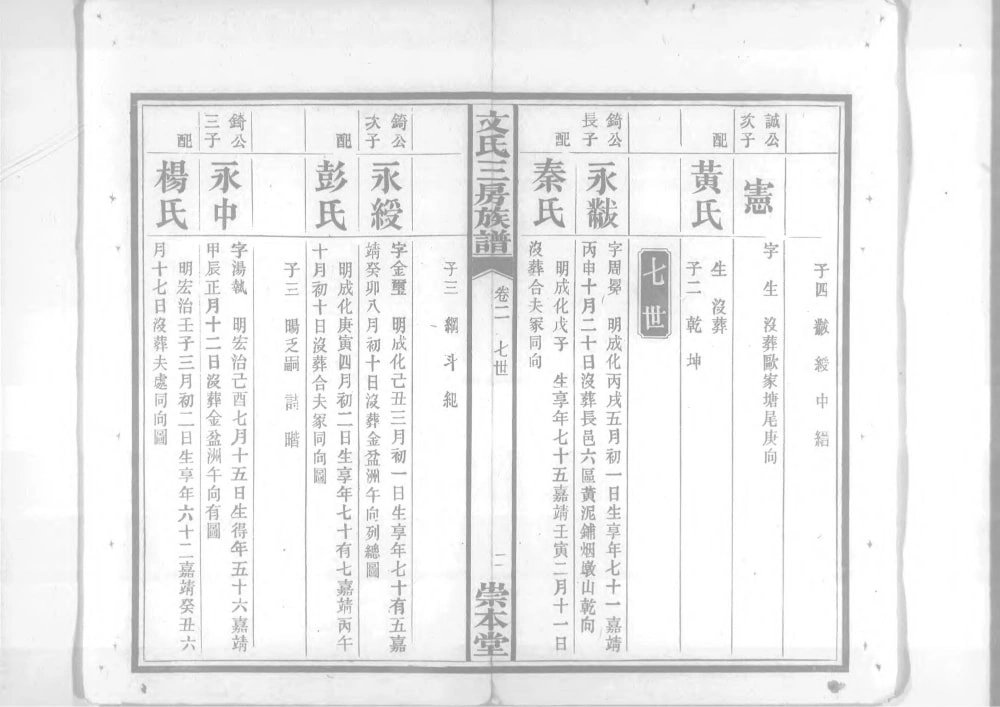 子四 黻 綬 中 縉
誠公次子
憲
字 生 沒葬歐家塘尾庚向
配
黃氏
生 沒葬
子二 乾 坤
七世
錡公長子
永黻
字周冕 明成化丙戌五月初一日生享年七十一嘉靖
丙申十月二十日沒葬長邑六區黃泥鋪烟墩山乾向
配
秦氏
明成化戊子 生享年七十五嘉靖壬寅二月十一日
沒葬合夫冢同向
文氏三房族譜
卷二 七世
二
崇本堂
子三 斗
錡公次子
永綬
字金璽 明成化己丑三月初一日生享年七十有五嘉
靖癸卯八月初十日沒葬金盆洲午向列總圖
配
彭氏
明成化庚寅四月初二日生享年七十有七嘉靖丙午
十月初十日沒葬合夫冢同向圖
子三 暘乏嗣 請 暗
錡公三子
永中
字湯執 明宏治己酉七月十五日生得年五十六嘉靖
甲辰正月十二日沒葬金盆洲午向有圖
配
楊氏
明宏治壬子三月初二日生享年六十二嘉靖癸丑六
月十七日沒葬夫處同向圖